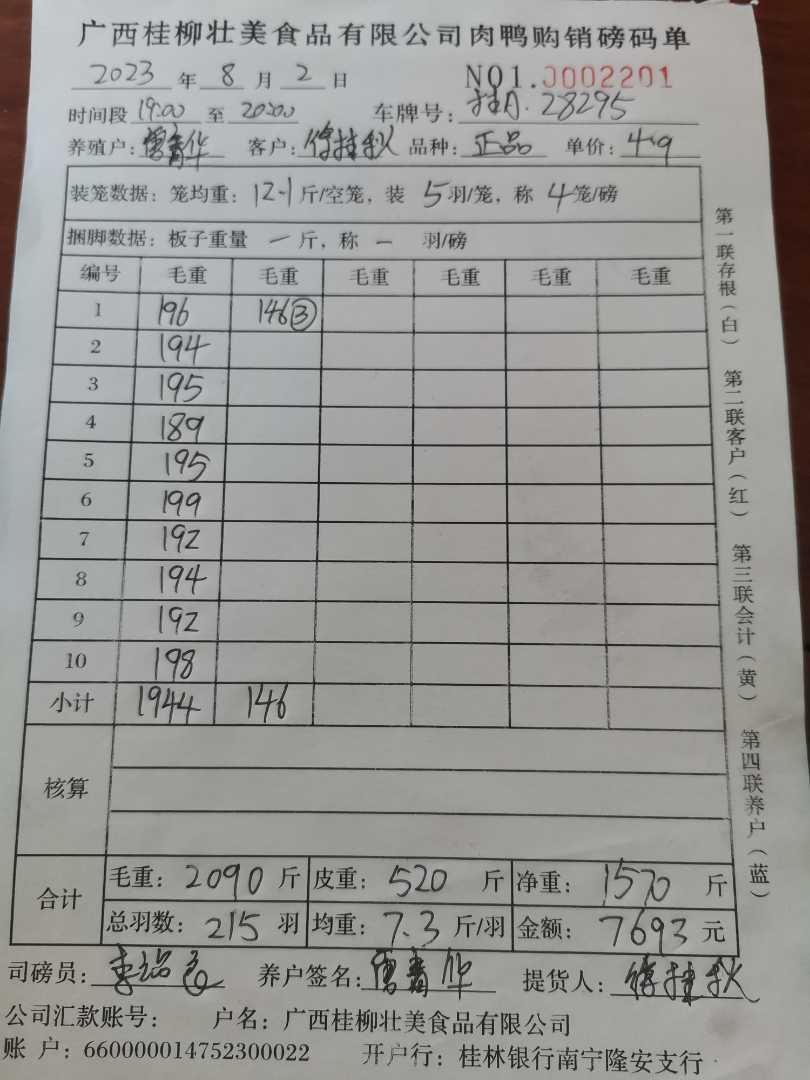 广西桂柳壮美食品有限公司肉鸭购销磅码单
2023 年 8 月 2 日 NO1.0002201
时间段 19:00 至 20:00 车牌号: 桂A·28295
养殖户: 客户: 徐桂秋 品种: 正品 单价: 4.9
装笼数据: 笼均重: 12.1 斤/空笼, 装 5 羽/笼, 称 4 笼/磅
捆脚数据: 板子重量 一 斤, 称 一 羽/磅
编号 毛重 毛重 毛重 毛重 毛重 毛重
1 196 146③
2 194
3 195
4 189
5 195
6 199
7 192
8 194
9 192
10 198
小计 1944 146
核算
合计 毛重: 2090 斤 皮重: 520 斤 净重: 1570 斤
总羽数: 215 羽 均重: 7.3 斤/羽 金额: 7693 元
司磅员: 养户签名: 提货人: 徐桂秋
公司汇款账号: 户名: 广西桂柳壮美食品有限公司
账 户: 660000014752300022 开户行: 桂林银行南宁隆安支行
第一联存根(白) 第二联客户(红) 第三联会计(黄) 第四联养户(蓝)